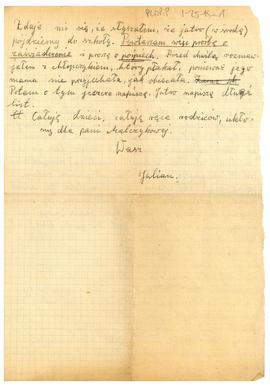 PCDJ.P 1-25-K-1
Zdaje mi się, że słyszałem, że jutro (w środę)
pójdziemy do szkoły. Powtarzam więc prośbę o
zaświadczenie i proszę o pojniech. Przed chwilą rozmaw-
jałem z chłopczykiem, który płakał, ponieważ jego
mama nie przyjechała, jak obiecała.
Potem o tym jeszcze napiszę. Jutro napiszę długi
list.
Całuję dzieci, całuję ręce rodziców, ukło-
ny dla pani Malczykowej.
Wasz
Julian.